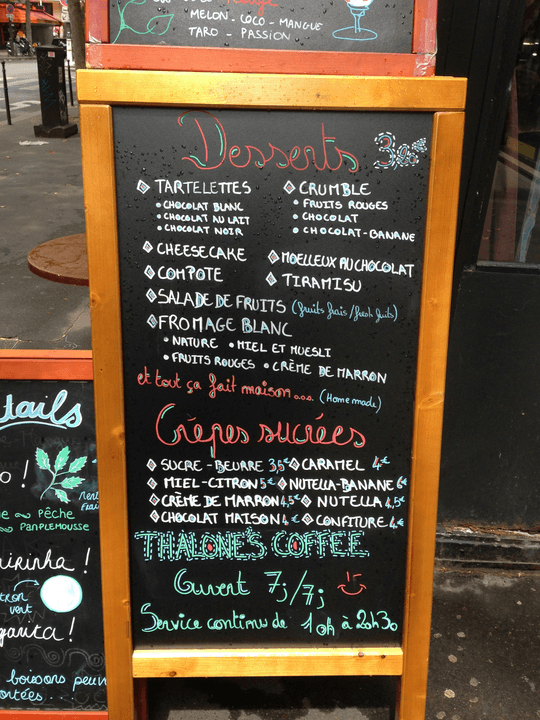 MELON - COCO - MANGUE
TARO - PASSION
Desserts 3€
TARTELETTES
• CHOCOLAT BLANC
• CHOCOLAT AU LAIT
• CHOCOLAT NOIR
CRUMBLE
• FRUITS ROUGES
• CHOCOLAT
• CHOCOLAT-BANANE
CHEESECAKE
MOELLEUX AU CHOCOLAT
COMPOTE
TIRAMISU
SALADE DE FRUITS (fruits frais/fresh fruits)
FROMAGE BLANC
• NATURE • MIEL ET MUESLI
• FRUITS ROUGES • CRÈME DE MARRON
et tout ça fait maison... (Home made)
Crêpes sucrées
SUCRE - BEURRE 3,5€ CARAMEL 4€
MIEL-CITRON 5€ NUTELLA-BANANE 6€
CRÈME DE MARRON 4,5€ NUTELLA 4,5€
CHOCOLAT MAISON 4€ CONFITURE 4€
THALONE'S COFFEE
Ouvert 7j/7j
Service continu de 10h à 20h30
tails
o !
PÊCHE
PAMPLEMOUSSE
irinha !
tron
vert
ganita !
boissons peuv
ortées ...